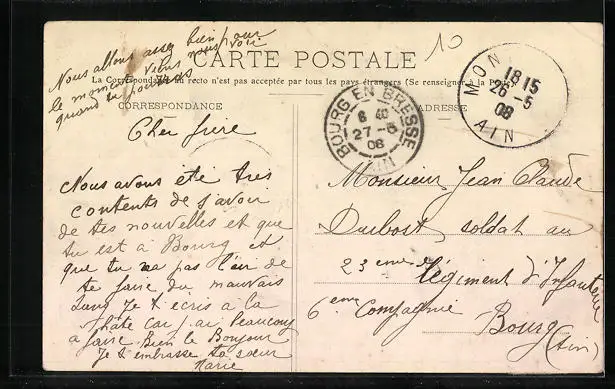 Nous allons assez bien pour
le moment viens nous voir
quand tu pourras
CARTE POSTALE
La Correspondance au recto n'est pas acceptée par tous les pays étrangers (Se renseigner à la Poste)
CORRESPONDANCE
ADRESSE
10
MON
18 15
26 -5
08
AIN
BOURG EN BRESSE
6 40
27 -5
08
AIN
Cher frère
Nous avons été très
contents de s'avoir
de tes nouvelles et que
tu est à Bourg et
que tu na pas l'air de
te faire du mauvais
sang Je t'ecris a la
hate car jai beaucoup
a faire Bien le Bonjour
Je t'embrasse ta sœur
Marie
Monsieur Jean Claude
Dubost soldat au
23eme Régiment d'Infanterie
6eme Compagnie
Bourg
(Ain)